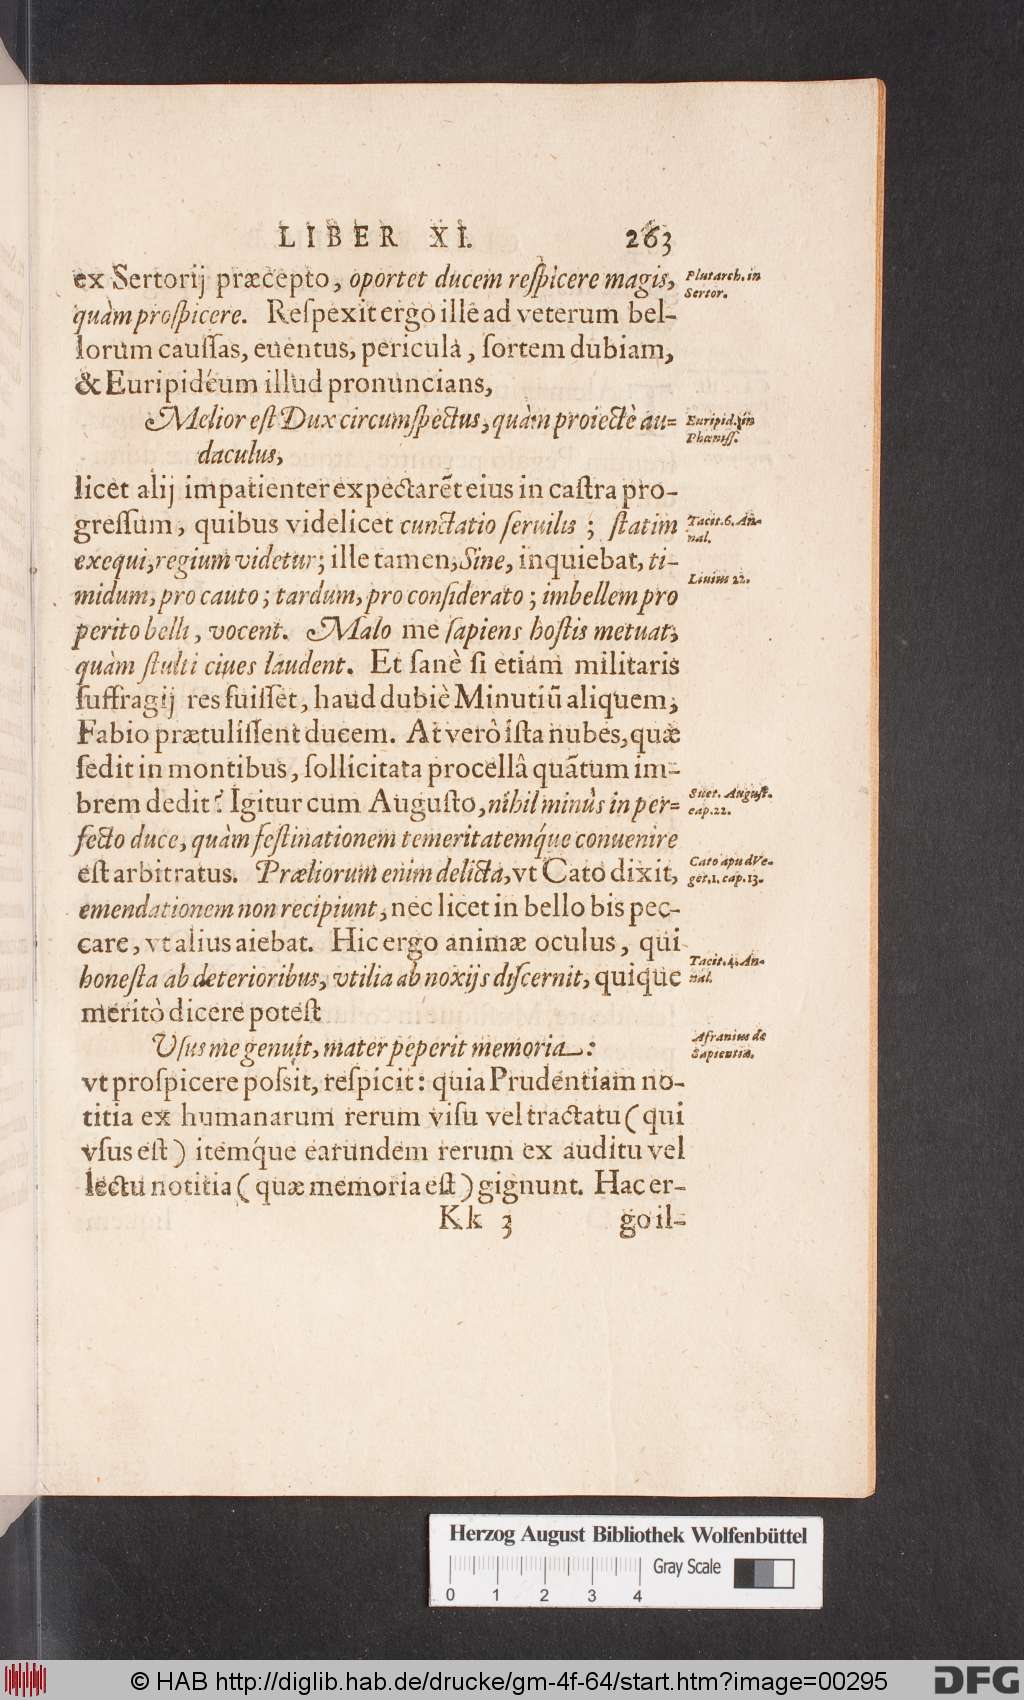 LIBER XI. 263
ex Sertorij præcepto, oportet ducem reſpicere magis,
quàm proſpicere. Reſpexit ergo ille ad veterum bel-
lorum cauſſas, euentus, pericula, ſortem dubiam,
& Euripidéum illud pronuncians,
Melior eſt Dux circumſpectus, quàm proiectè au-
daculus,
licet alij impatienter expectarēt eius in caſtra pro-
greſſum, quibus videlicet cunctatio ſeruilis ; ſtatim
exequi, regium videtur; ille tamen, Sine, inquiebat, ti-
midum, pro cauto ; tardum, pro conſiderato ; imbellem pro
perito belli, vocent. Malo me ſapiens hoſtis metuat,
quàm ſtulti ciues laudent. Et ſanè ſi etiam militaris
ſuffragij res fuiſſet, haud dubiè Minutiū aliquem,
Fabio prætuliſſent ducem. At verò iſta nubes, quæ
ſedit in montibus, ſollicitata procellâ quātum im-
brem dedit? Igitur cum Auguſto, nihil minùs in per-
fecto duce, quàm feſtinationem temeritatemq́ue conuenire
eſt arbitratus. Præliorum enim delicta, vt Cato dixit,
emendationem non recipiunt, nec licet in bello bis pec-
care, vt alius aiebat. Hic ergo animæ oculus, qui
honeſta ab deterioribus, vtilia ab noxijs diſcernit, quique
meritò dicere poteſt
Vſus me genuit, mater peperit memoria :
vt proſpicere poſsit, reſpicit: quia Prudentiam no-
titia ex humanarum rerum viſu vel tractatu ( qui
vſus eſt ) itemq́ue earundem rerum ex auditu vel
lectu notitia ( quæ memoria eſt ) gignunt. Hac er-
Kk 3 go il-
Plutarch. in
Sertor.
Euripid. in
Phœniſſ.
Tacit. 6. An-
nal.
Liuius 22.
Suet. Auguſt.
cap. 22.
Cato apud Ve-
get. 1. cap. 13.
Tacit. 4. An-
nal.
Afranius de
Sapientia.
Herzog August Bibliothek Wolfenbüttel
0 1 2 3 4 Gray Scale
© HAB http://diglib.hab.de/drucke/gm-4f-64/start.htm?image=00295
DFG